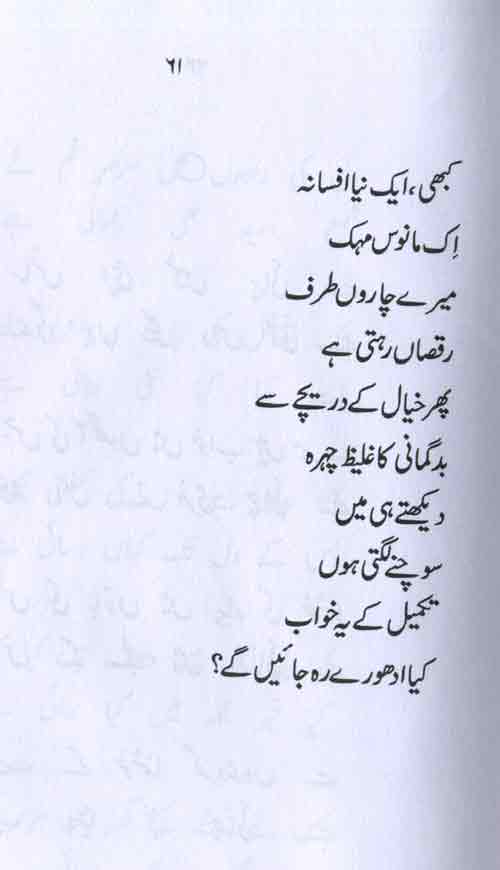 ۶۱
کبھی، ایک نیا افسانہ
اِک مانوس مہک
میرے چاروں طرف
رقصاں رہتی ہے
پھر خیال کے دریچے سے
بدگمانی کا غلیظ چہرہ
دیکھتے ہی میں
سوچنے لگتی ہوں
تکمیل کے یہ خواب
کیا ادھورے رہ جائیں گے؟